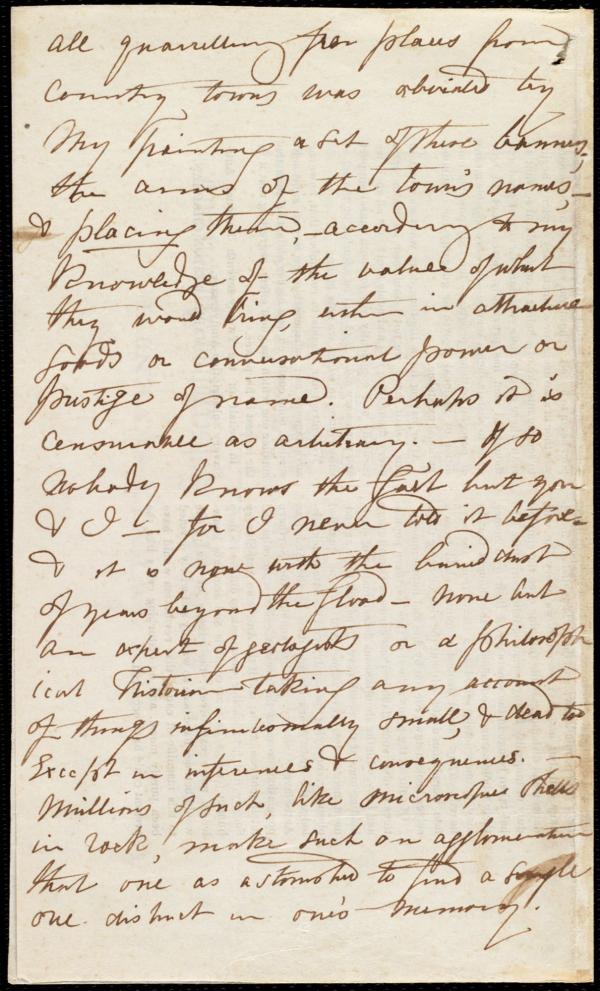 all quarrelling for places from
country towns was obviated by
my painting a set of these banners,
the arms of the town's names,—
& placing them,—according to my
knowledge of the value of what
they would bring, either in attractive
goods or conversational power or
prestige of name. Perhaps it is
censurable as arbitrary. — If so
nobody knows the fact but you
& I — for I never told it before—
& it is now with the buried dust
of years beyond the flood — none but
an expert of geologists or a philosoph
ical historian taking any account
of things infinitesimally small, & dead too
except in inferences & consequences. —
Millions of such, like microscopic shells
in rock, make such an agglomeration
that one is astonished to find a single
one distinct in one's memory.